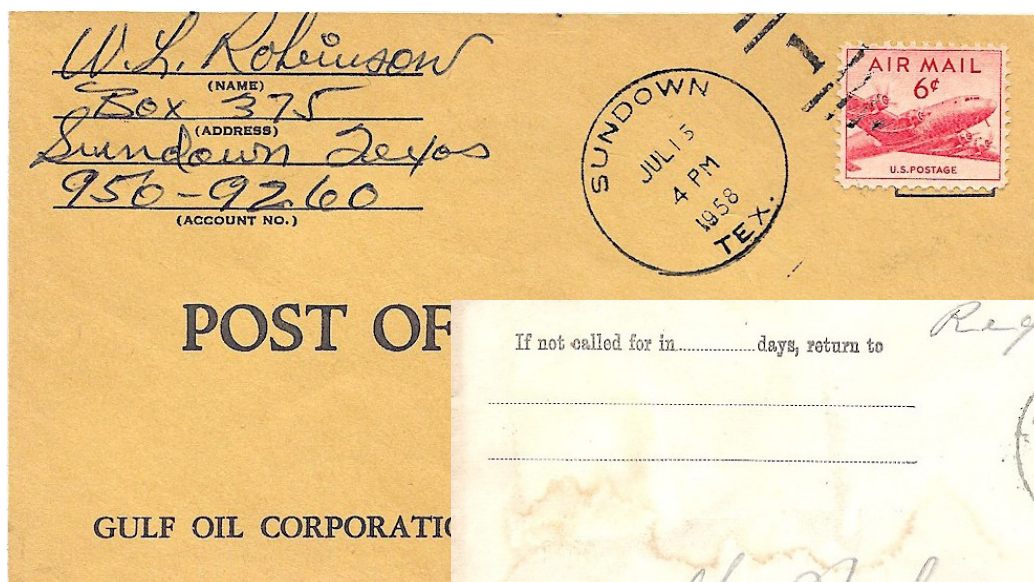 W. L. Robinson
(NAME)
Box 375
(ADDRESS)
Sundown Texas
950-9260
(ACCOUNT NO.)
SUNDOWN
JUL 15
4 PM
1958
TEX.
1
AIR MAIL
6¢
U.S. POSTAGE
POST OF
GULF OIL CORPORATIO
If not called for in ............ days, return to
Reg